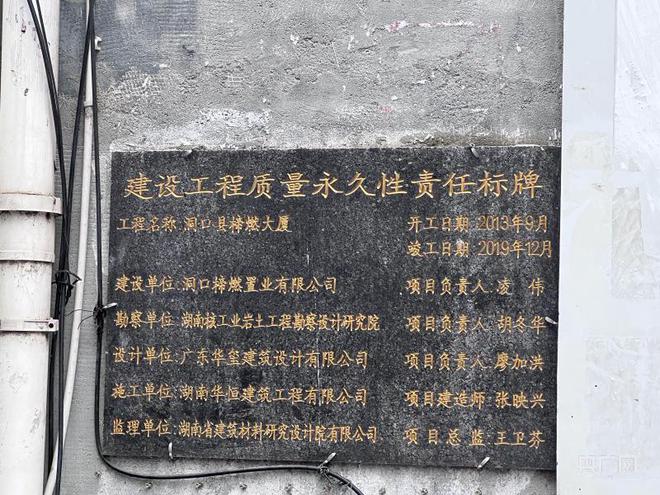 建设工程质量永久性责任标牌
工程名称:洞口县樟燃大厦 开工日期:2013年9月
竣工日期:2019年12月
建设单位:洞口樟燃置业有限公司 项目负责人:凌 伟
勘察单位:湖南核工业岩土工程勘察设计研究院 项目负责人:胡冬华
设计单位:广东华玺建筑设计有限公司 项目负责人:廖加洪
施工单位:湖南华恒建筑工程有限公司 项目建造师:张映兴
监理单位:湖南省建筑材料研究设计院有限公司 项目总监:王卫芬
央广网